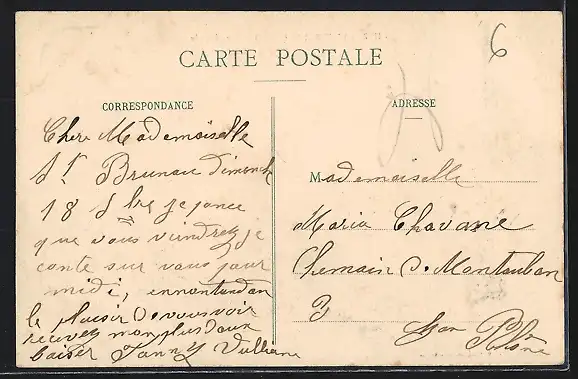 6
CARTE POSTALE
CORRESPONDANCE
Chere Mademoiselle
St Brunau Dimench
18 Sbre je pance
que vous viendrez je
conte sur vous pour
midi, ennantandan
le plaisir de vous voir
recuvez mon plus doux
baiser Fanny Vulliane
ADRESSE
Mademoiselle
Maria Chavane
Chemain D. Montauban
3
Lyon Rhône